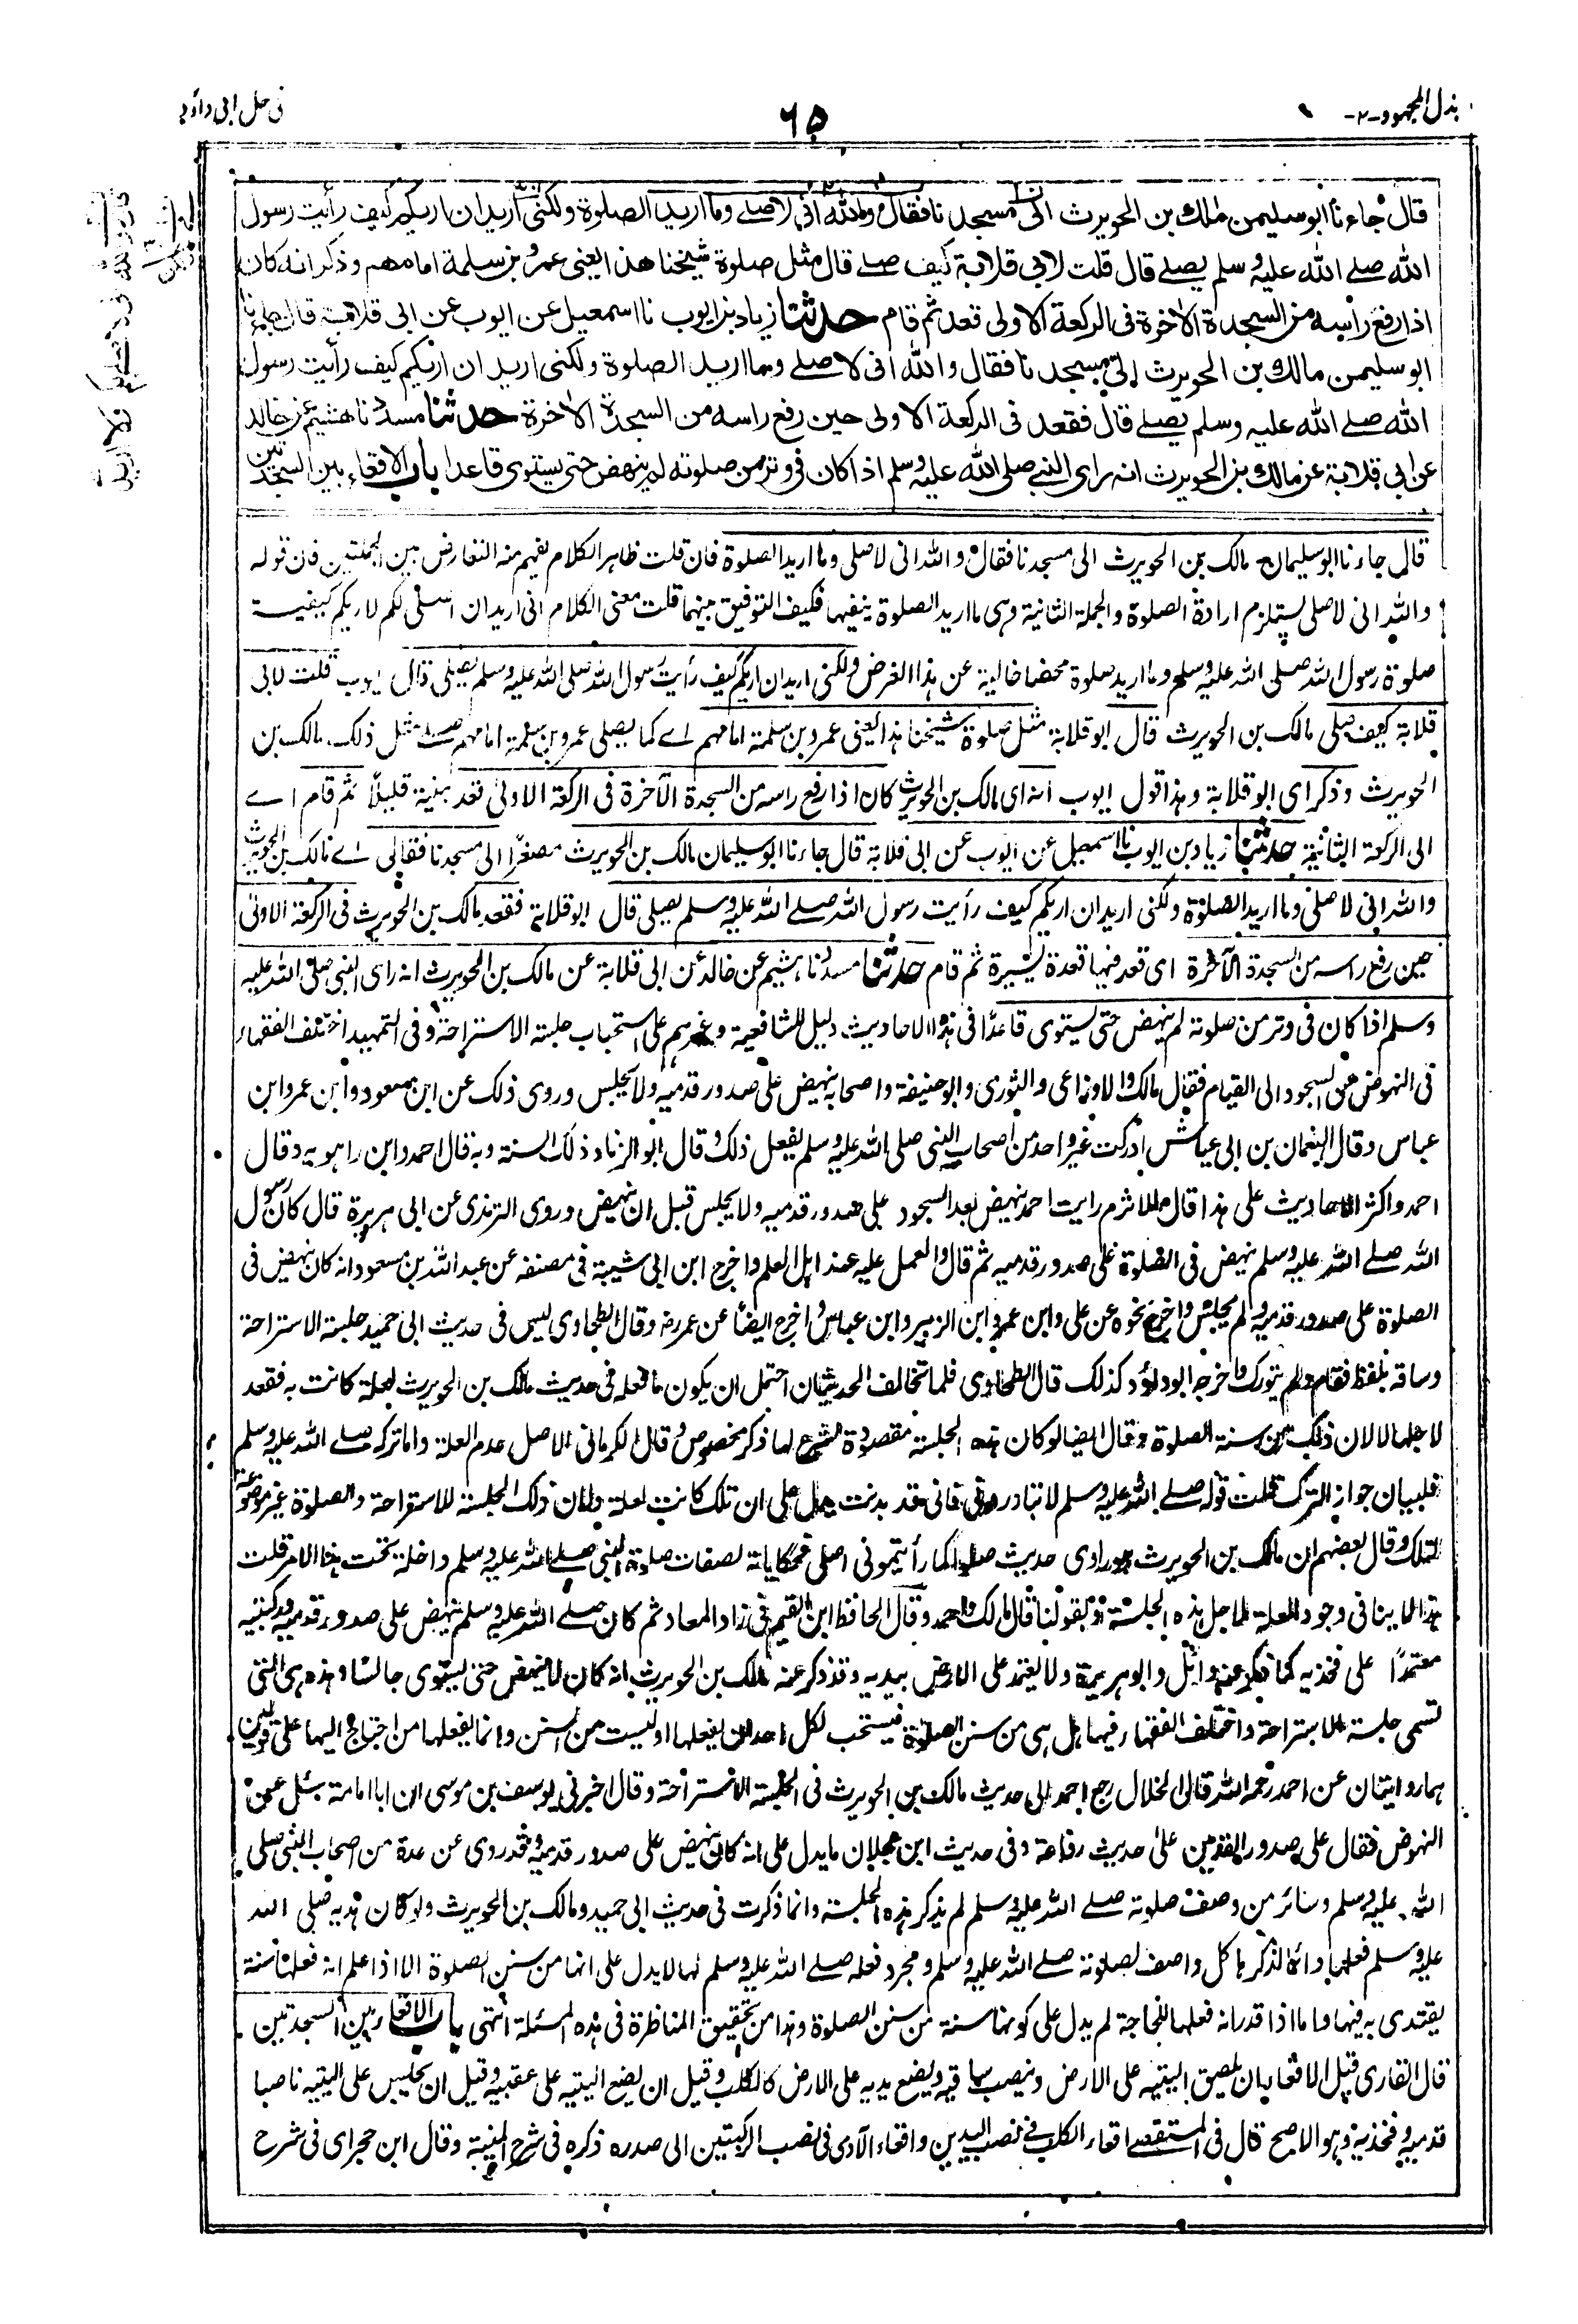 بذل المجهود -٢-
٦٥
في حل ابي داؤد
قال جاءنا ابو سليمن مالك بن الحويرث الى مسجدنا فقال والله انى لاصلے وما اريد الصلوة ولكنى اريد ان اريكم كيف رأيت رسول
الله صلے الله عليه وسلم يصلے قال قلت لابى قلابة كيف صلے قال مثل صلوة شيخنا هذا يعنى عمرو بن سلمة امامهم وذكر انه كان
اذا رفع رأسه من السجدة الآخرة فى الركعة الاولى قعد ثم قام حدثنا زياد بن ايوب نا اسمعيل عن ايوب عن ابى قلابة قال جاءنا
ابو سليمن مالك بن الحويرث الى مسجدنا فقال والله انى لاصلے وما اريد الصلوة ولكنى اريد ان اريكم كيف رأيت رسول
الله صلے الله عليه وسلم يصلے قال فقعد فى الركعة الاولى حين رفع راسه من السجدة الآخرة حدثنا مسدد نا هشيم عن خالد
عن ابى قلابة عن مالك بن الحويرث انه راى النبى صلى الله عليه وسلم اذا كان فى وتر من صلوته لم ينهض حتى يستوى قاعدا باب الاقعاء بين السجدتين
قال جاءنا ابو سليمان مالك بن الحويرث الى مسجدنا فقال والله انى لاصلى وما اريد الصلوة فان قلت ظاهر الكلام يفهم منه التعارض بين الجملتين فان قوله
والله انى لاصلى يستلزم ارادة الصلوة والجملة الثانية وهى ما اريد الصلوة ينفيها فكيف التوفيق بينهما قلت معنى الكلام انى اريد ان اصلى لكم لاريكم كيفية
صلوة رسول الله صلى الله عليه وسلم وما اريد صلوة محضا خالية عن هذا الغرض ولكنى اريد ان اريكم كيف رأيت رسول الله صلى الله عليه وسلم يصلى قال ايوب قلت لابى
قلابة كيف صلى مالك بن الحويرث قال ابو قلابة مثل صلوة شيخنا هذا يعنى عمرو بن سلمة امامهم اے كما يصلى عمرو بن سلمة امامهم صلے مثل ذلك مالك بن
الحويرث وذكر اى ابو قلابة وهذا قول ايوب انه اى مالك بن الحويرث كان اذا رفع راسه من السجدة الآخرة فى الركعة الاولى قعد هنية قليلا ثم قام اے
الى الركعة الثانية حدثنا زياد بن ايوب نا اسمعيل عن ايوب عن ابى قلابة قال جاءنا ابو سليمان مالك بن الحويرث مصغرا الى مسجدنا فقال اے مالك بن الحويرث
والله انى لاصلى وما اريد الصلوة ولكنى اريد ان اريكم كيف رأيت رسول الله صلے الله عليه وسلم يصلى قال ابو قلابة فقعد مالك بن الحويرث فى الركعة الاولى
حين رفع راسه من السجدة الآخرة اى قعد فيها قعدة يسيرة ثم قام حدثنا مسدد نا هشيم عن خالد عن ابى قلابة عن مالك بن الحويرث انه راى النبى صلى الله عليه
وسلم اذا كان فى وتر من صلوته لم ينهض حتى يستوى قاعدا فى هذه الاحاديث دليل للشافعية وغيرهم على استحباب جلسة الاستراحة وفى التمهيد اختلف الفقهاء
فى النهوض عن السجود الى القيام فقال مالك والاوزاعى والثورى وابو حنيفة واصحابه ينهض على صدور قدميه ولا يجلس وروى ذلك عن ابن مسعود وابن عمر وابن
عباس وقال النعمان بن ابى عياش ادركت غير واحد من اصحاب النبى صلى الله عليه وسلم يفعل ذلك وقال ابو الزناد ذلك السنة وبه قال احمد وابن راهويه وقال
احمد واكثر الاحاديث على هذا قال الاثرم رايت احمد ينهض بعد السجود على صدور قدميه ولا يجلس قبل ان ينهض وروى الترمذى عن ابى هريرة قال كان رسول
الله صلے الله عليه وسلم ينهض فى الصلوة على صدور قدميه ثم قال والعمل عليه عند اهل العلم واخرج ابن ابى شيبة فى مصنفه عن عبد الله بن مسعود انه كان ينهض فى
الصلوة على صدور قدميه ولم يجلس واخرج نحوه عن على وابن عمر وابن الزبير وابن عباس واخرج ايضا عن عمر رض وقال الطحاوى ليس فى حديث ابى حميد جلسة الاستراحة
وساقه بلفظ فقام ولم يتورك واخرجه ابو داؤد كذلك قال الطحاوى فلما تخالف الحديثان احتمل ان يكون ما فعله فى حديث مالك بن الحويرث لعلة كانت به فقعد
لاجلها لا لان ذلك من سنة الصلوة وقال ايضا لو كان هذه الجلسة مقصودة لشرع لها ذكر مخصوص وقال الكرمانى الاصل عدم العلة واما تركه صلے الله عليه وسلم
فلبيان جواز الترك قلت قوله صلے الله عليه وسلم لا تبادرونى فانى قد بدنت يدل على ان تلك كانت لعلة ولان ذلك الجلسة للاستراحة والصلوة غير موضوعة
لتلك وقال بعضهم ان مالك بن الحويرث هو راوى حديث صلوا كما رأيتمونى اصلى فحكاياته لصفات صلوة النبى صلے الله عليه وسلم داخلة تحت هذا الامر قلت
هذا لا ينافى وجود العلة لاجل هذه الجلسة وبقولنا قال مالك واحمد وقال الحافظ ابن القيم فى زاد المعاد ثم كان صلے الله عليه وسلم ينهض على صدور قدميه وركبتيه
معتمدا على فخذيه كما ذكر عنه وائل وابو هريرة ولا يعتمد على الارض بيديه وقد ذكر عنه مالك بن الحويرث انه كان لا ينهض حتى يستوى جالسا وهذه هى التى
تسمى جلسة الاستراحة واختلف الفقهاء فيها هل هى من سنن الصلوة فيستحب لكل احد ان يفعلها او ليست من السنن وانما يفعلها من احتاج اليها على قولين
هما روايتان عن احمد رحمه الله قال الخلال رجع احمد الى حديث مالك بن الحويرث فى الجلسة الاستراحة وقال اخبرنى يوسف بن موسى ان ابا امامة سئل عن
النهوض فقال على صدور القدمين على حديث رفاعة وفى حديث ابن عجلان ما يدل على انه كان ينهض على صدور قدميه وقد روى عن عدة من اصحاب النبى صلى
الله عليه وسلم وسائر من وصف صلوته صلے الله عليه وسلم لم يذكر هذه الجلسة وانما ذكرت فى حديث ابى حميد ومالك بن الحويرث ولو كان هديه صلى الله
عليه وسلم فعلها دائما لذكرها كل واصف لصلوته صلے الله عليه وسلم ومجرد فعله صلے الله عليه وسلم لها لا يدل على انها من سنن الصلوة الا اذا علم انه فعلها سنة
يقتدى به فيها واما اذا قدر انه فعلها للحاجة لم يدل على كونها سنة من سنن الصلوة وهذا من تحقيق المناظرة فى هذه المسئلة انتهى باب الاقعاء بين السجدتين
قال القارى قيل الاقعاء ان يلصق اليتيه على الارض وينصب ساقيه ويضع يديه على الارض كالكلب وقيل ان يضع اليتيه على عقبيه وقيل ان يجلس على اليتيه ناصبا
قدميه وفخذيه وهو الاصح قال فى المستقصے اقعاء الكلب فى نصب اليدين واقعاء الآدمى فى نصب الركبتين الى صدره ذكره فى شرح المنية وقال ابن حجر اى فى شرح